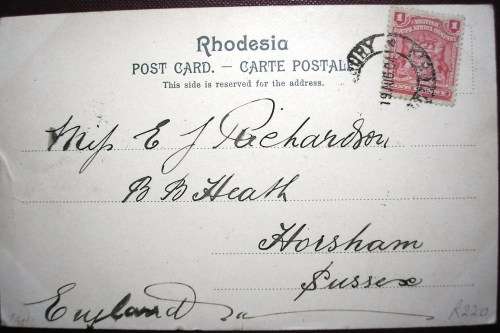 Rhodesia
POST CARD. — CARTE POSTALE
This side is reserved for the address.
1 1
BRITISH
SOUTH AFRICA COMPANY
Miss E J Richardson
B B Heath
Horsham
Sussex
England
R220